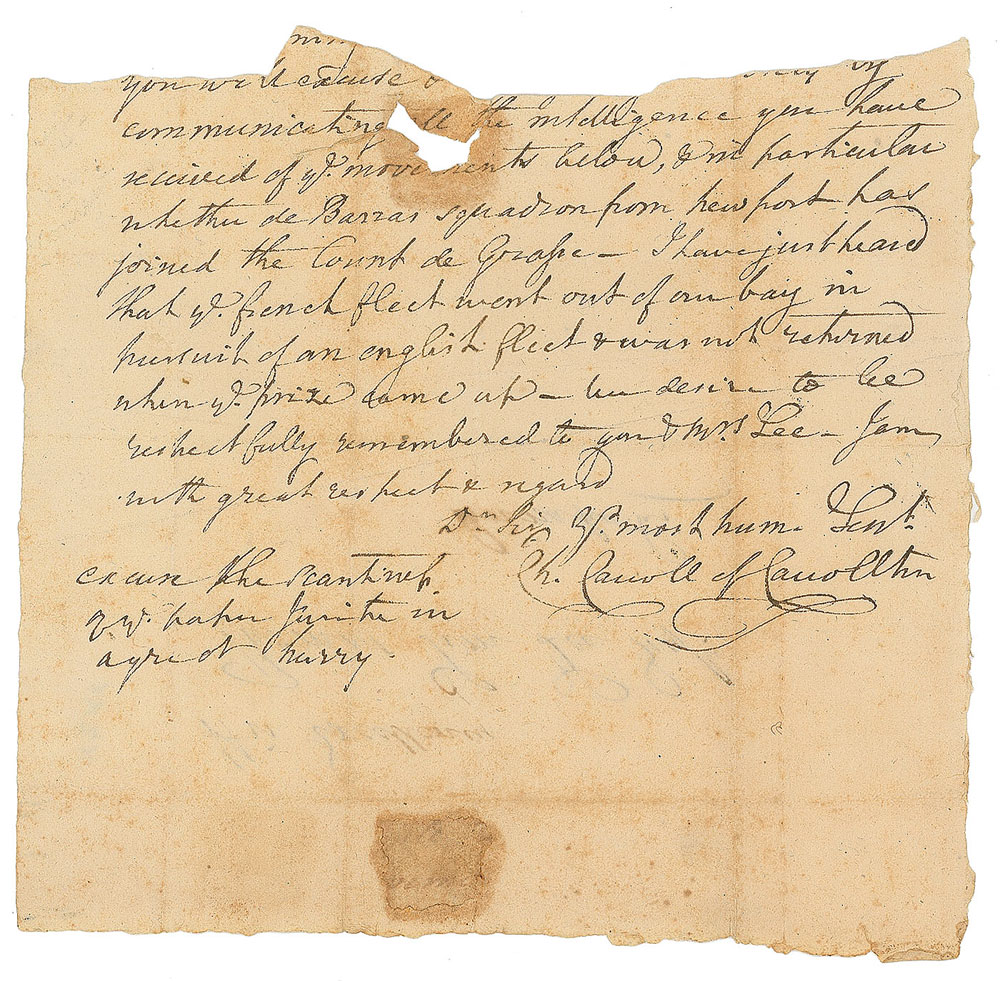 you will excuse
communicating all the intelligence you have
received of yᵉ. movements below, & in particular
whether de Barras squadron from new port has
joined the Count de Grasse – I have just heard
that yᵉ. french fleet went out of our bay in
pursuit of an english fleet & was not returned
when yᵉ. prize came up – we desire to be
respectfully remembered to you & Mrs Lee – I am
with great respect & regard
Dr. Sir yr. most hum. Servt.
Ch. Carroll of Carrollton
excuse the scantiness
of yᵉ. paper I write in
a great hurry.